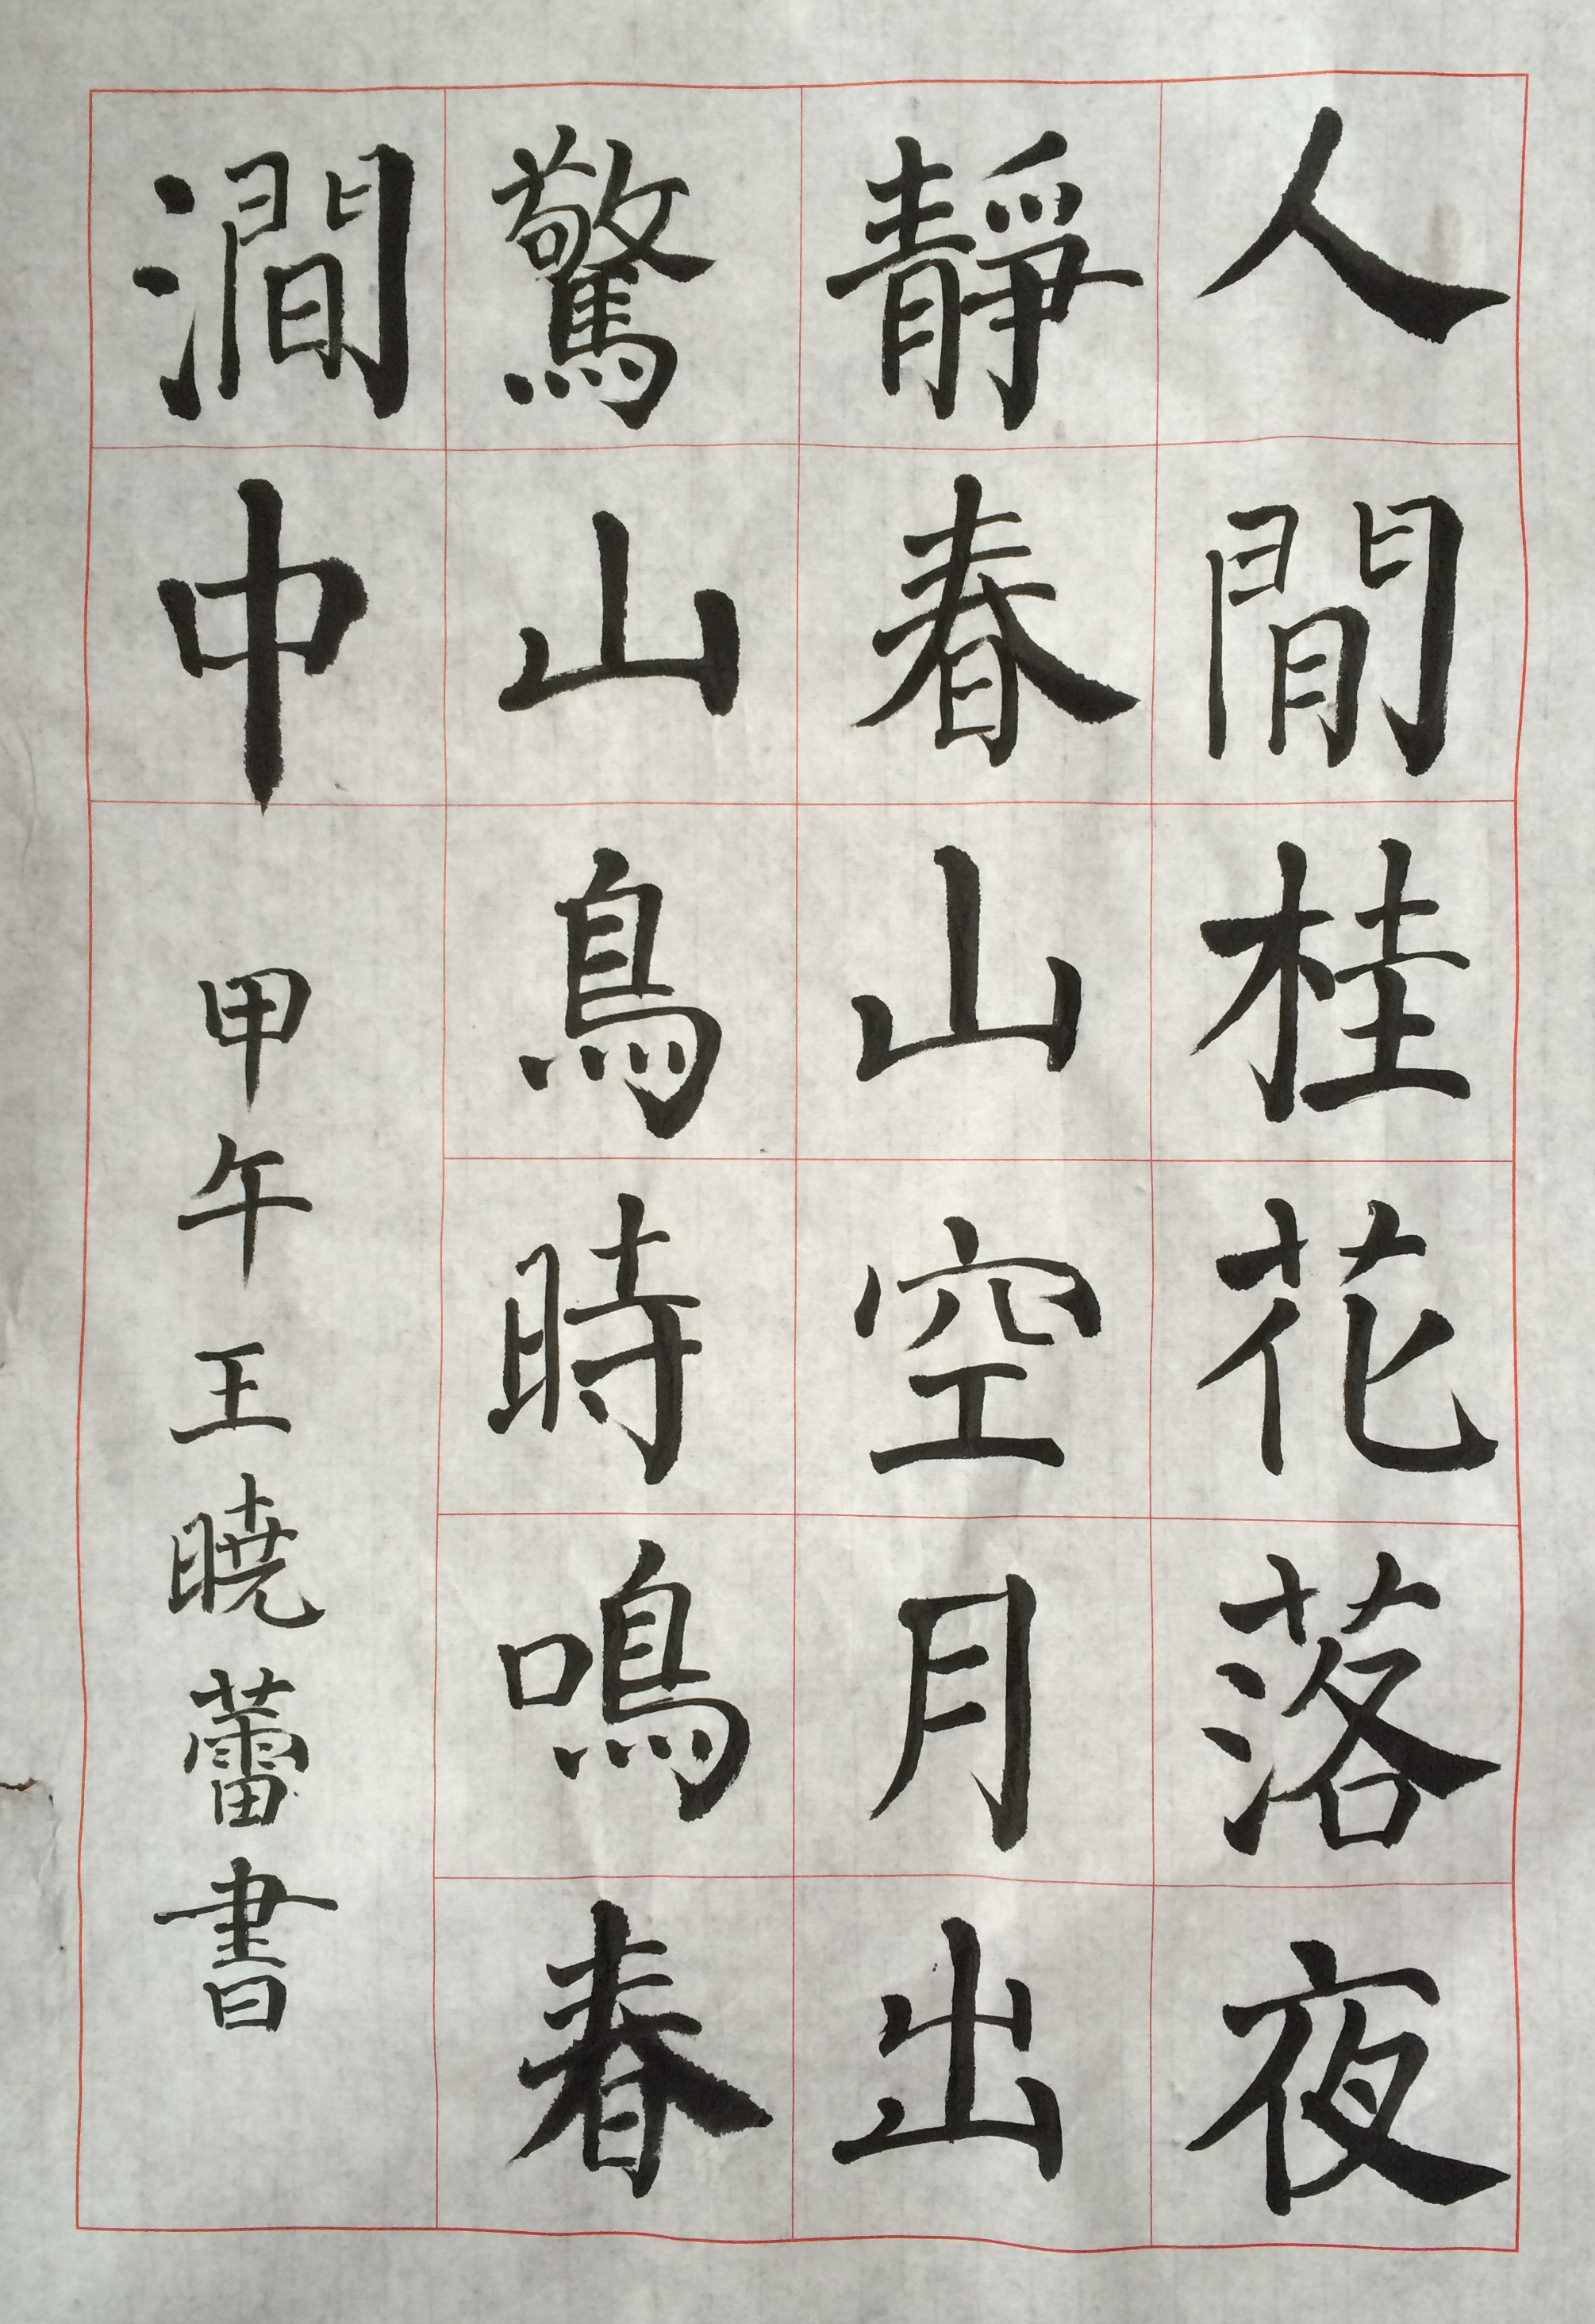 人間桂花落夜
靜春山空月出
驚山鳥時鳴春
澗中
甲午王曉蕾書